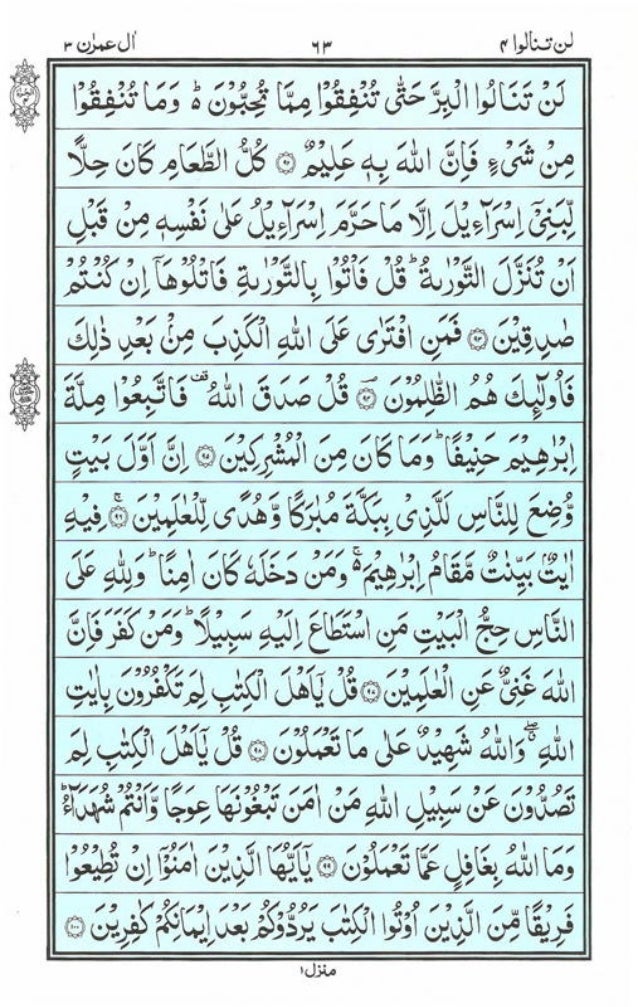 لن تنالوا ۴ ٦٣ اٰل عمرٰن ۳
لَنْ تَنَالُوا الْبِرَّ حَتّٰى تُنْفِقُوْا مِمَّا تُحِبُّوْنَ ؕ وَمَا تُنْفِقُوْا
مِنْ شَىْءٍ فَاِنَّ اللّٰهَ بِهٖ عَلِيْمٌ ۝۹۲ كُلُّ الطَّعَامِ كَانَ حِلًّا
لِّبَنِىْۤ اِسْرَآءِيْلَ اِلَّا مَا حَرَّمَ اِسْرَآءِيْلُ عَلٰى نَفْسِهٖ مِنْ قَبْلِ
اَنْ تُنَزَّلَ التَّوْرٰىةُ ؕ قُلْ فَاْتُوْا بِالتَّوْرٰىةِ فَاتْلُوْهَاۤ اِنْ كُنْتُمْ
صٰدِقِيْنَ ۝۹۳ فَمَنِ افْتَرٰى عَلَى اللّٰهِ الْكَذِبَ مِنْۢ بَعْدِ ذٰلِكَ
فَاُولٰٓئِكَ هُمُ الظّٰلِمُوْنَ ۝۹۴ؔ قُلْ صَدَقَ اللّٰهُ ۛ فَاتَّبِعُوْا مِلَّةَ
اِبْرٰهِيْمَ حَنِيْفًا ؕ وَمَا كَانَ مِنَ الْمُشْرِكِيْنَ ۝۹۵ اِنَّ اَوَّلَ بَيْتٍ
وُّضِعَ لِلنَّاسِ لَلَّذِىْ بِبَكَّةَ مُبٰرَكًا وَّهُدًى لِّلْعٰلَمِيْنَ ۝۹۶ۚ فِيْهِ
اٰيٰتٌۢ بَيِّنٰتٌ مَّقَامُ اِبْرٰهِيْمَ ۚ وَمَنْ دَخَلَهٗ كَانَ اٰمِنًا ؕ وَلِلّٰهِ عَلَى
النَّاسِ حِجُّ الْبَيْتِ مَنِ اسْتَطَاعَ اِلَيْهِ سَبِيْلًا ؕ وَمَنْ كَفَرَ فَاِنَّ
اللّٰهَ غَنِىٌّ عَنِ الْعٰلَمِيْنَ ۝۹۷ قُلْ يٰۤاَهْلَ الْكِتٰبِ لِمَ تَكْفُرُوْنَ بِاٰيٰتِ
اللّٰهِ ۖ وَاللّٰهُ شَهِيْدٌ عَلٰى مَا تَعْمَلُوْنَ ۝۹۸ قُلْ يٰۤاَهْلَ الْكِتٰبِ لِمَ
تَصُدُّوْنَ عَنْ سَبِيْلِ اللّٰهِ مَنْ اٰمَنَ تَبْغُوْنَهَا عِوَجًا وَّاَنْتُمْ شُهَدَآءُ ؕ
وَمَا اللّٰهُ بِغَافِلٍ عَمَّا تَعْمَلُوْنَ ۝۹۹ يٰۤاَيُّهَا الَّذِيْنَ اٰمَنُوْۤا اِنْ تُطِيْعُوْا
فَرِيْقًا مِّنَ الَّذِيْنَ اُوْتُوا الْكِتٰبَ يَرُدُّوْكُمْ بَعْدَ اِيْمَانِكُمْ كٰفِرِيْنَ ۝۱۰۰
منزل ۱